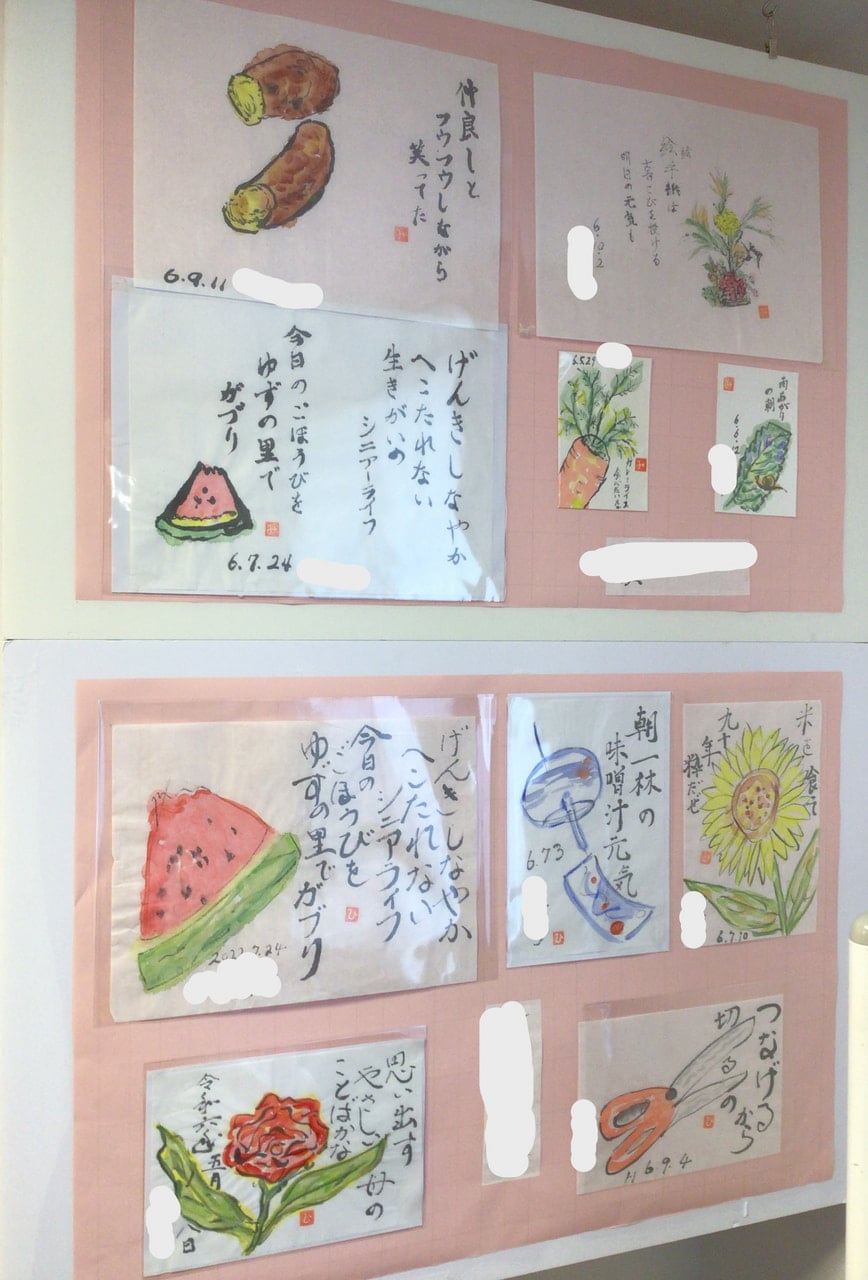 仲良しと
フウフウしながら
笑ってた
6.9.11
絵手紙は
喜こびを授ける
明日の元気も
げんきしなやか
へこたれない
生きがいの
シニアーライフ
今日のごほうびを
ゆずの里で
がづり
6.7.24
6.5.29
カレーライス
雨あがり
の朝
げんきしなやか
へこたれない
シニアライフ
今日の
ごほうびを
ゆずの里でガヅリ
7.24
朝一杯の
味噌汁元気
6.7.3
九十年
粋だぜ
6.7.10
思い出す
やさしい母の
ことばかな
令和六年五月
八日
つなげる
から
切るの
6.9.4